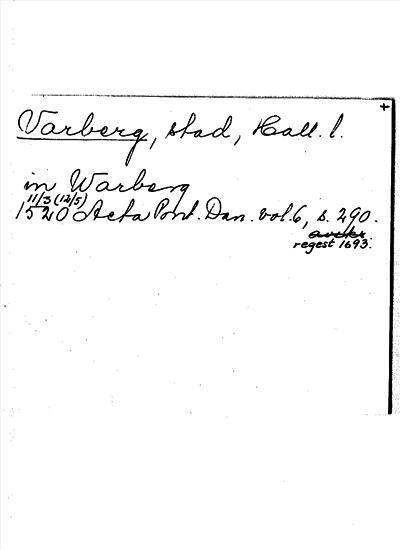 +
Varberg, stad, Hall. l.
in Warberg
11/3 (12/5)
1520 Acta Pont. Dan. vol. 6, s. 290.
regest 1693.